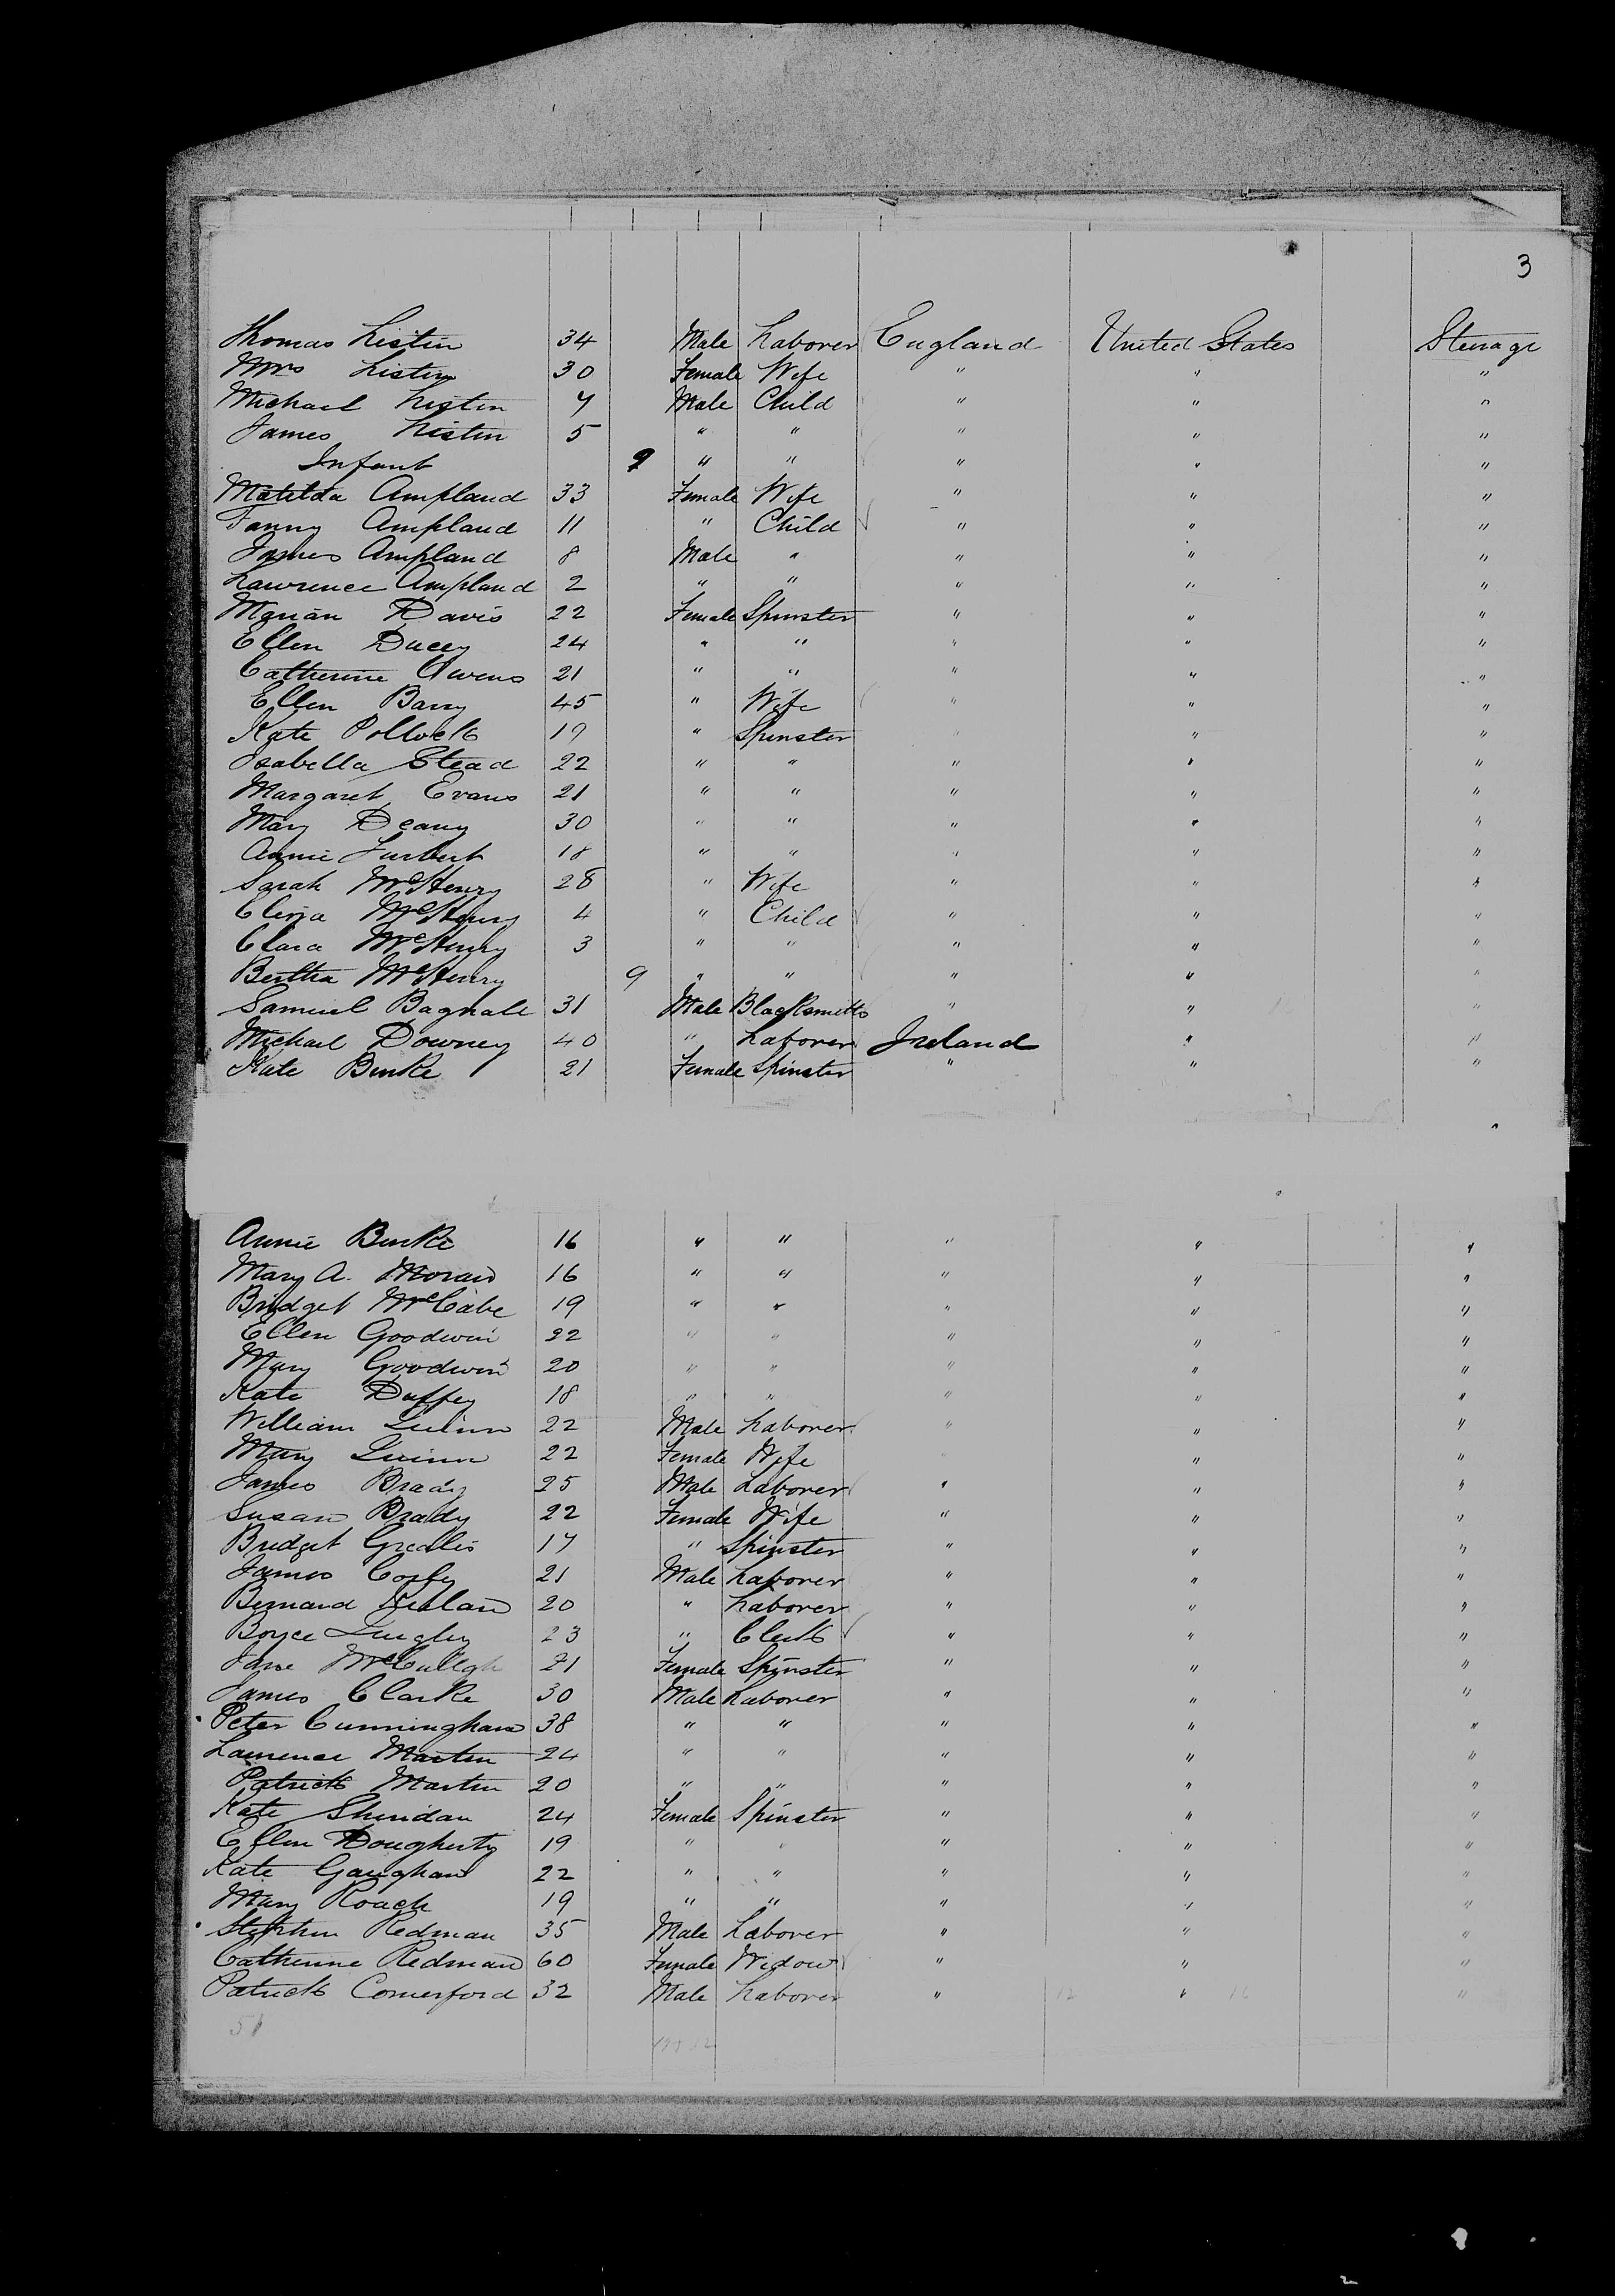 3
Thomas Listin 34 Male Laborer England United States Steerage
Mrs Listin 30 Female Wife " " "
Michael Listin 7 Male Child " " "
James Listin 5 " " " " "
Infant 9 " " " " "
Matilda Ampland 33 Female Wife " " "
Fanny Ampland 11 " Child " " "
James Ampland 8 Male " " " "
Lawrence Ampland 2 " " " " "
Marian Davis 22 Female Spinster " " "
Ellen Ducey 24 " " " " "
Catherine Owens 21 " " " " "
Ellen Barry 45 " Wife " " "
Kate Pollock 19 " Spinster " " "
Isabella Stead 22 " " " " "
Margaret Evans 21 " " " " "
Mary Deany 30 " " " " "
Annie 18 " " " " "
Sarah McHenry 28 " Wife " " "
Eliza McHenry 4 " Child " " "
Clara McHenry 3 " " " " "
Bertha McHenry 9 " " " " "
Samuel Bagnall 31 Male Blacksmith " " "
Michael Downey 40 " Laborer Ireland " "
Kate Burke 21 Female Spinster " " "
Annie Burke 16 " " " " "
Mary A. Moran 16 " " " " "
Bridget McCabe 19 " " " " "
Ellen Goodwin 22 " " " " "
Mary Goodwin 20 " " " " "
Kate Duffey 18 " " " " "
William Quinn 22 Male Laborer " " "
Mary Quinn 22 Female Wife " " "
James Brady 25 Male Laborer " " "
Susan Brady 22 Female Wife " " "
Bridget Grealis 17 " Spinster " " "
James 21 Male Laborer " " "
Bernard 20 " Laborer " " "
Boyce Quigley 23 " Clerk " " "
Jane McCullgh 21 Female Spinster " " "
James Clarke 30 Male Laborer " " "
Peter Cunningham 38 " " " " "
Laurence Martin 24 " " " " "
Patrick Martin 20 " " " " "
Kate Sheridan 24 Female Spinster " " "
Ellen Dougherty 19 " " " " "
Kate Gaughan 22 " " " " "
Mary Roach 19 " " " " "
Stephen Redman 35 Male Laborer " " "
Catherine Redman 60 Female Widow " " "
Patrick Comerford 32 Male Laborer " 12 " 16 "
51